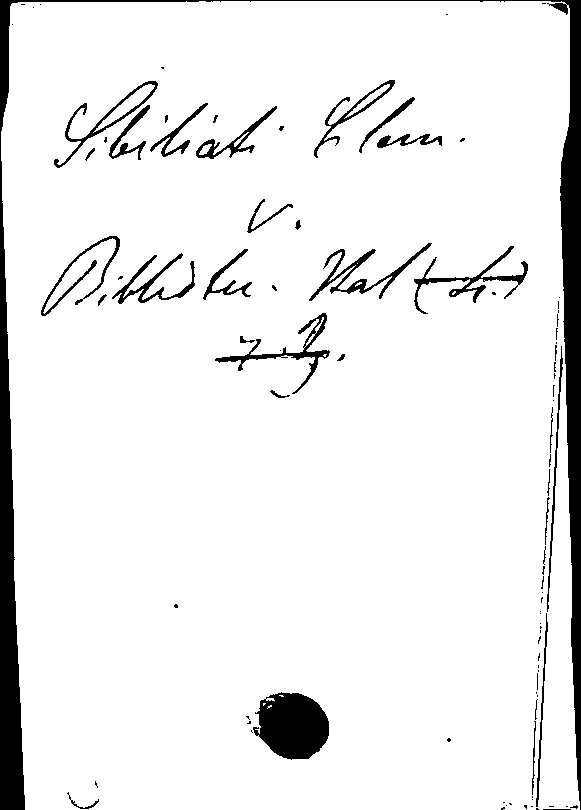 Sibiliati Clem.
v.
Bibliotec. Ital